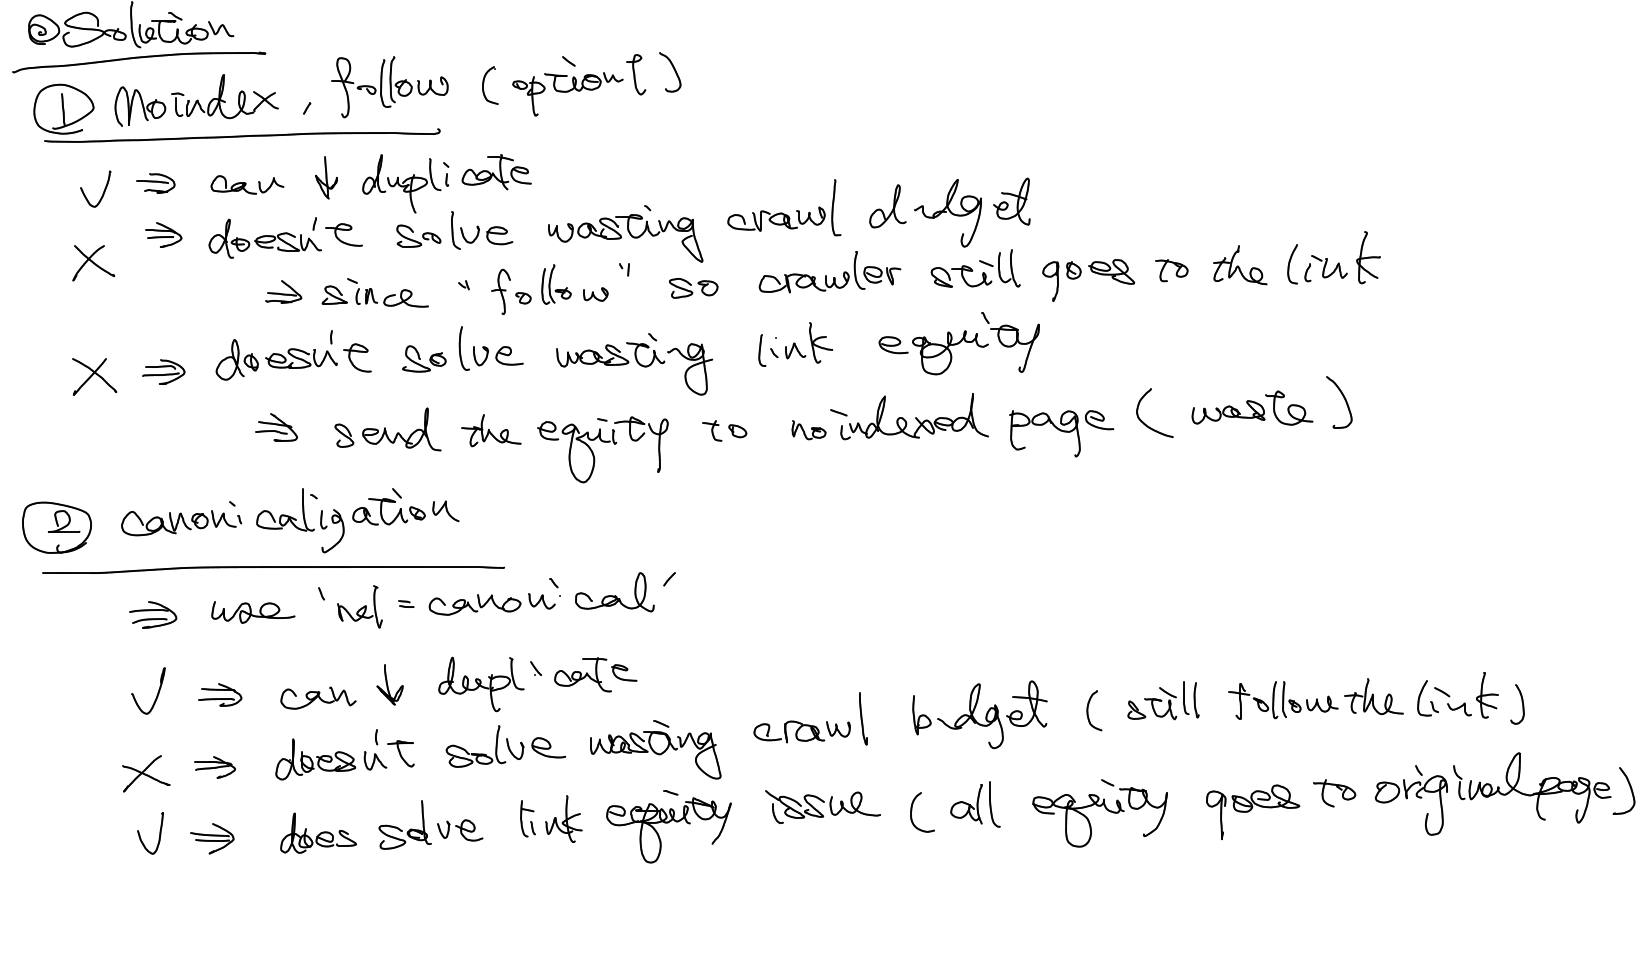 ⊙ Solution
① Noindex, follow (option1)
✓ ⇒ can ↓ duplicate
X ⇒ doesn't solve wasting crawl budget
⇒ since "follow" so crawler still goes to the link
X ⇒ doesn't solve wasting link equity
⇒ send the equity to noindexed page (waste)
② canonicalization
⇒ use 'rel=canonical'
✓ ⇒ can ↓ duplicate
X ⇒ doesn't solve wasting crawl budget (still follow the link)
✓ ⇒ does solve link equity issue (all equity goes to original page)